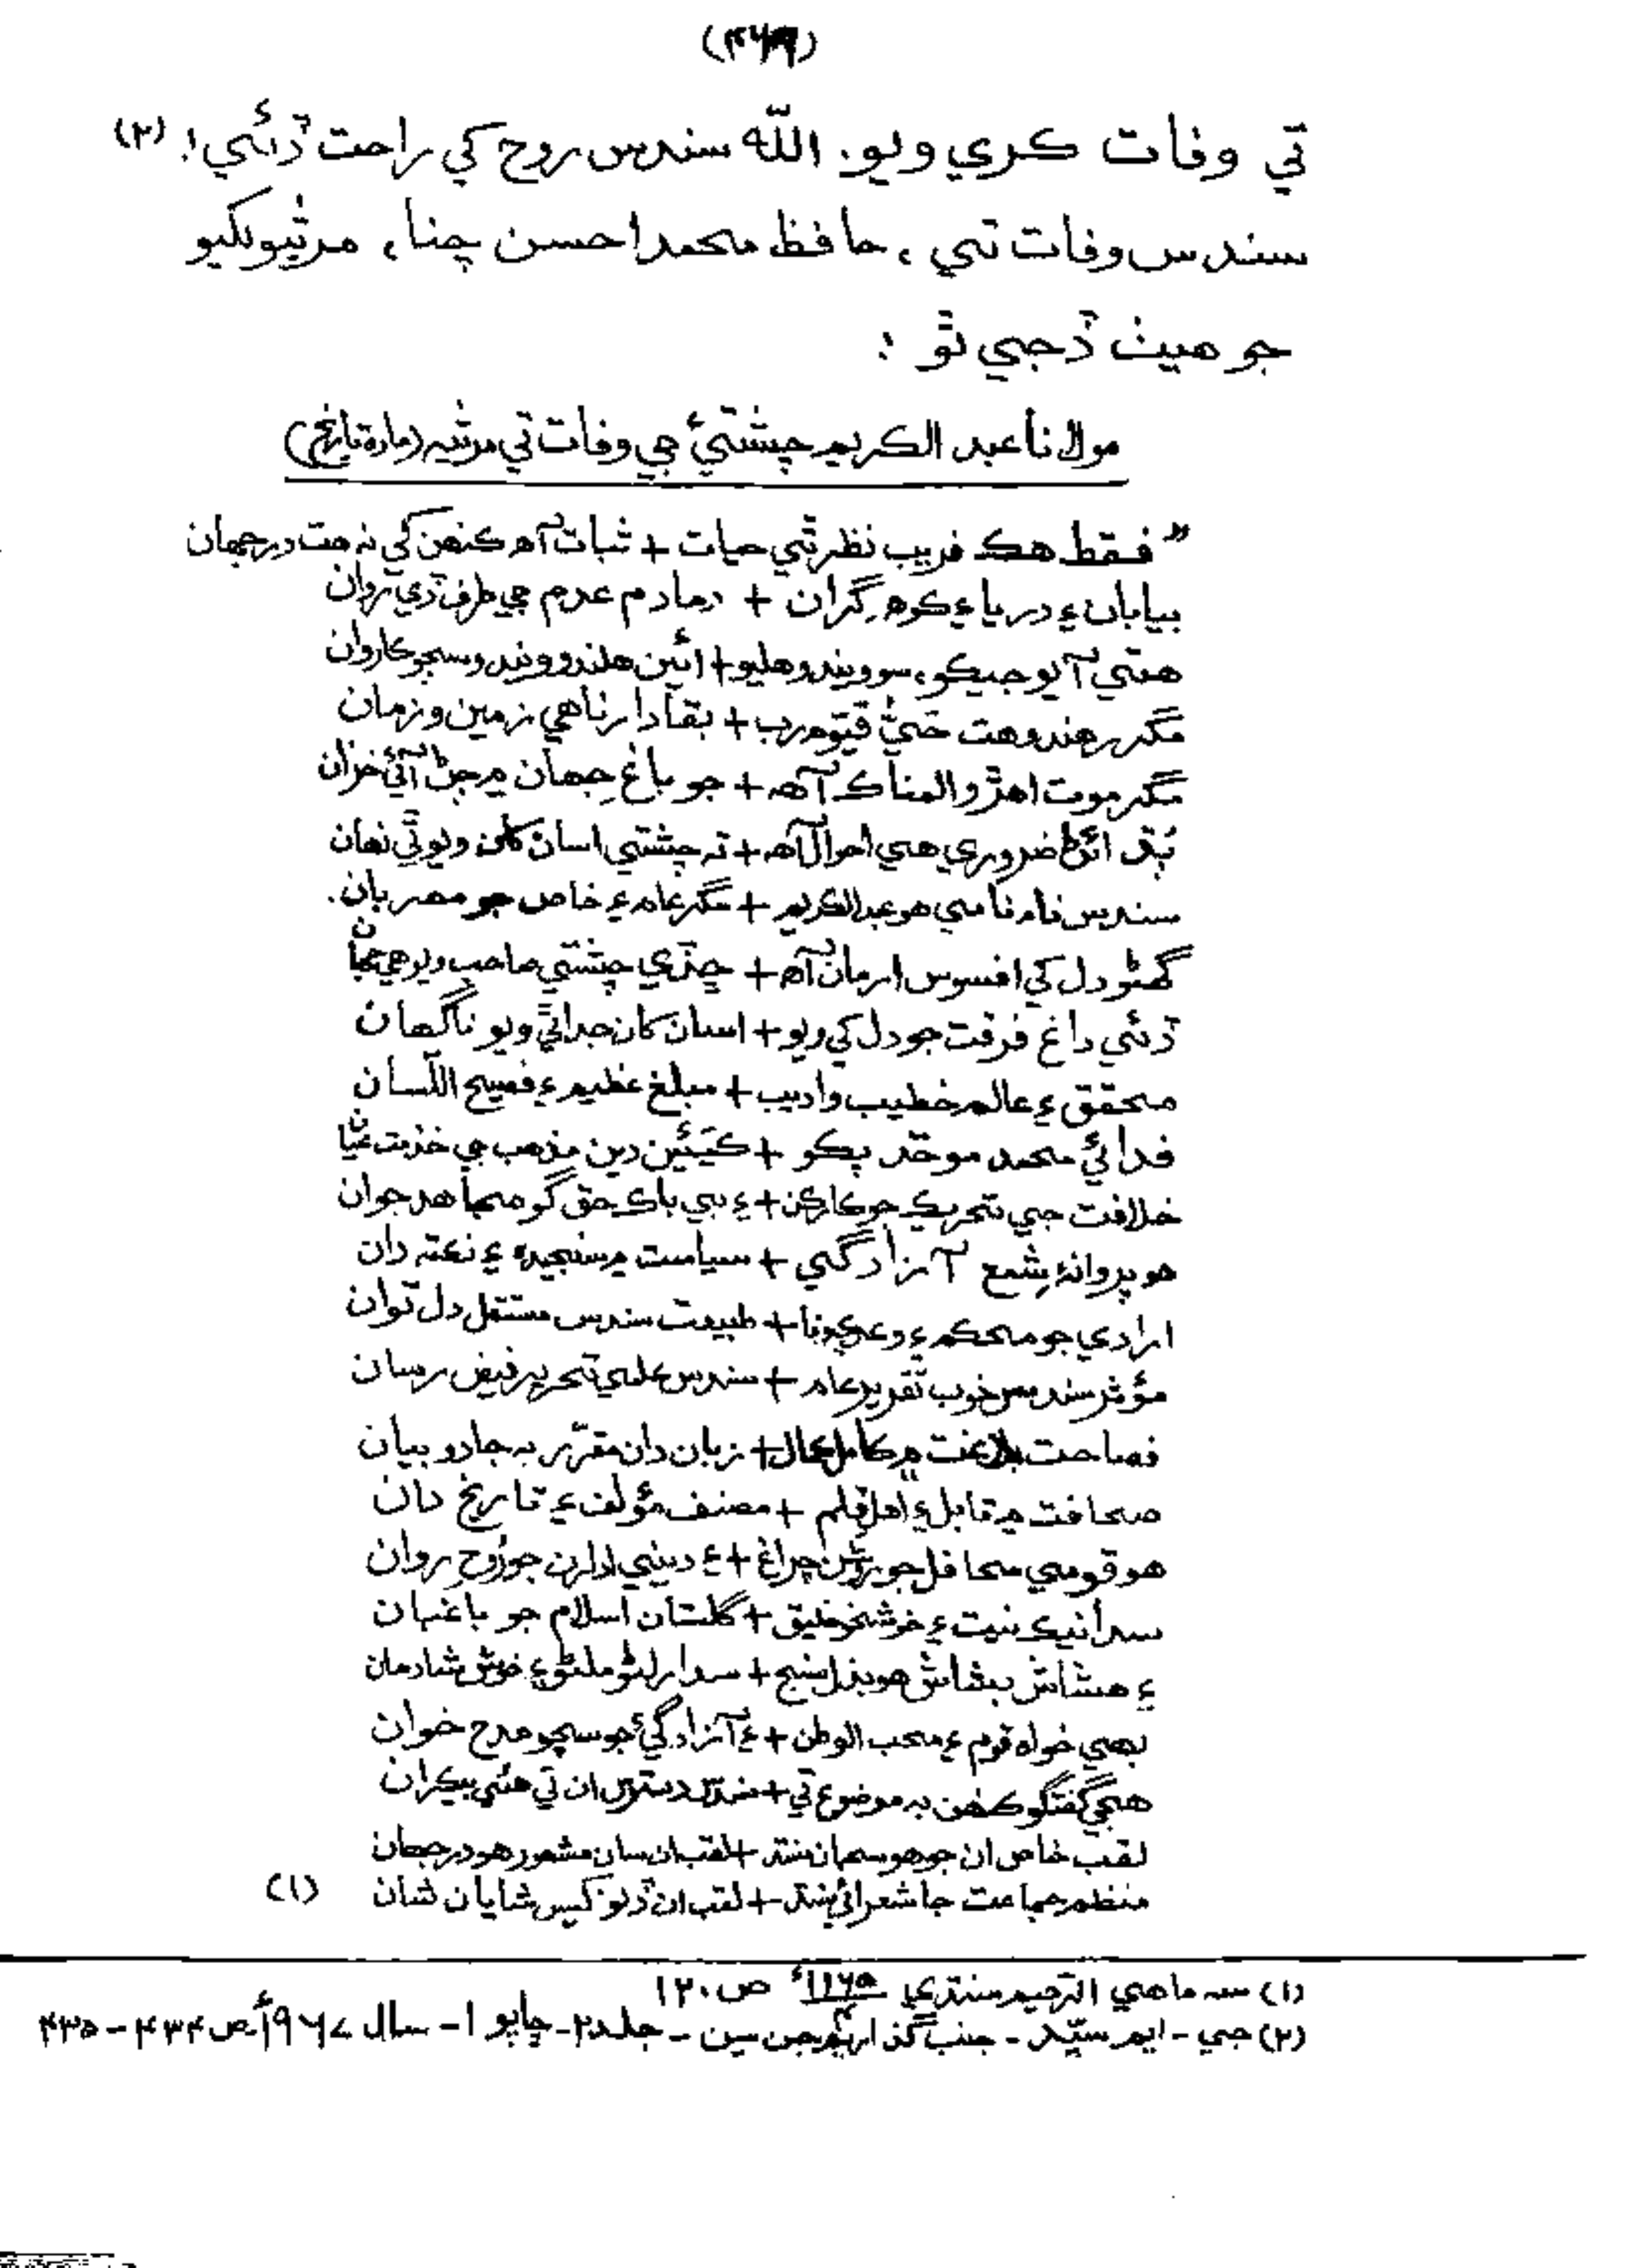 تي وفات ڪري ويو. اللّٰه سندس روح کي راحت ڏئي! (۲)
سندس وفات تي، حافظ محمد احسن چنا، مرثيو لکيو
جو هيٺ ڏجي ٿو :
مولانا عبد الڪريم چشتيءَ جي وفات تي مرثيه (ماده تاريخ)
”فقط هڪ فريب نظر ٿي حيات + ثبات آهه ڪنهن کي نه هت در جهان
بيابان ۽ دريا ۽ ڪوهِ گران + دمادم عدم جي طرف ڙي روان
هتي آيو جيڪو، سو ويندو هليو + ائين هلندو ويندو سڄو ڪاروان
مگر رهندو هت حَيُّ قيّوم رب + بقادار ناهي زمين و زمان
مگر موت اهڙو المناڪ آهه + جو باغِ جهان ۾ ڄڻ آئي خزان
ضروري هي احوال آهه + ته چشتي اسان کان ويو ٿي نهان
سندس نام نامي هو عبدالڪريم + مگر عام ۽ خاص جو مهربان.
گهڻو دل کي افسوس ارمان آهه + ڇڏي چشتي صاحب ويو هي جهان
ڏئي داغ فرقت جو دل کي ويو + اسان کان جدا ٿي ويو ناگهان
محقق ۽ عالم خطيب و اديب + مبلغ عظيم ۽ فصيح اللّسان
فدائي محمد موحّد پڪو + ڪيَئين دين مذهب جي خذمت عيان
خلافت جي تحريڪ جو ڪارڪن + ۽ بي باڪ حق گو مجاهد جوان
هو پروانهٔ شمع آزادگي + سياست ۾ سنجيده ۽ نڪته دان
ارادي جو محڪم ۽ وعدي وفا + طبيعت سندس مستقل دل توان
مؤثر سندس خوب تقرير عام + سندس علمي تحرير فيض رسان
فصاحت بلاغت ۾ ڪامل ڪمال + زبان دان مقرّر به جادو بيان
صحافت ۾ قابل ۽ اهل قلم + مصنف مؤلف ۽ تاريخ دان
هو قومي محافل جو روشن چراغ + ۽ ديني ادارن جو رُوحِ روان
سدا نيڪ نيت ۽ خوشخو خليق + گلستان اسلام جو باغبان
۽ هشاش بشاش هو بذل سنج + سدا رلڻو ملڻو ۽ خوش شادمان
بهي خواه قوم ۽ محب الوطن + ۽ آزادگيءَ جو سچو مدح خوان
هجي گفتگو ڪنهن به موضوع تي + سندس دسترس ان تي هئي بيڪران
لقب خاص ان جو هو سحبان سنڌ + لقب ان سان مشهور هو در جهان
منظم جماعت جا شعرائِ سنڌ + لقب ان ڏنو کيس شايان شان (۱)
(۱) سه ماهي الترحيم سنڌي ص ۱۲۰
(۲) جي - ايم سيّد - جنب گذاريم جن سين - جلد ۲ - ڇاپو ۱ - سال ۱۹۶۷ع ص ۴۳۴ - ۴۳۵